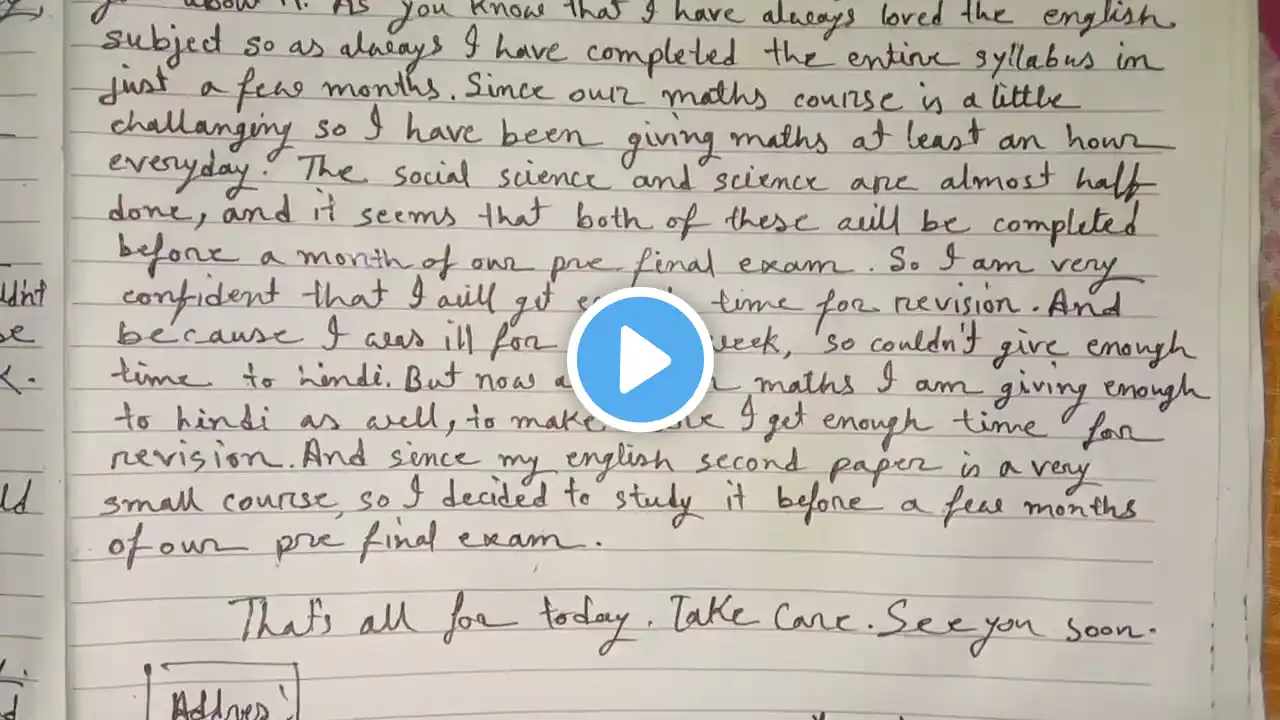 about it. As you know that I have always loved the english
subject so as always I have completed the entire syllabus in
just a few months. Since our maths course is a little
challanging so I have been giving maths at least an hour
everyday. The social science and science are almost half
done, and it seems that both of these will be completed
before a month of our pre final exam. So I am very
confident that I will get time for revision. And
because I was ill for week, so couldn't give enough
time to hindi. But now maths I am giving enough
to hindi as well, to make I get enough time for
revision. And since my english second paper is a very
small course, so I decided to study it before a few months
of our pre final exam.
That's all for today. Take Care. See you soon.
Address